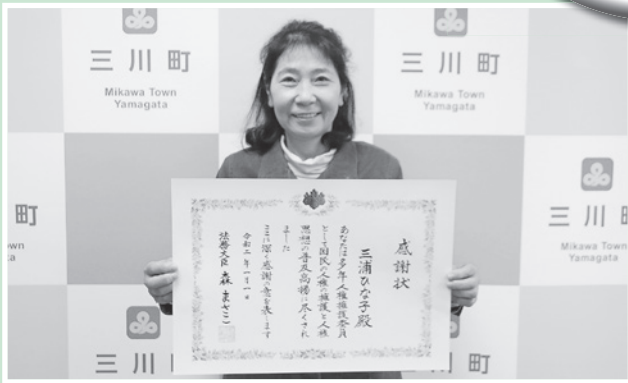 三川町
Mikawa Town
Yamagata
三川町
Mikawa Town
Yamagata
町
wn
a
三川
Mikawa Town
Yamagata
感謝状
三浦ひな子殿
あなたは多年人権擁護委員
として国民の人権の擁護と人権
思想の普及高揚に尽くされ
ました
ここに深く感謝の意を表します
令和二年一月一日
法務大臣 森まさこ
三川
町